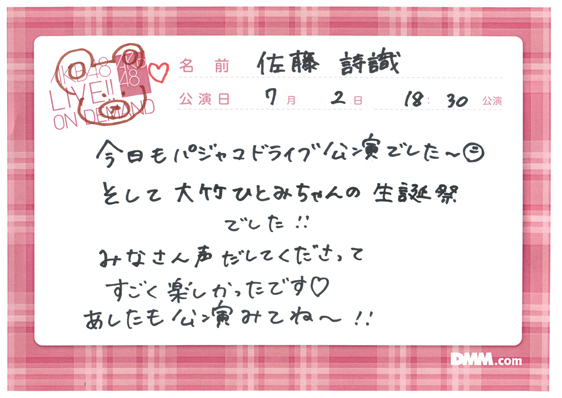 AKB48
LIVE!!
ON DEMAND
名前 佐藤 詩識
公演日 7月 2日 18:30 公演
今日もパジャマドライブ公演でした〜☺
そして 大竹ひとみちゃんの 生誕祭
でした!!
みなさん声だしてくださって
すごく楽しかったです♡
あしたも公演みてね〜!!
DMM.com